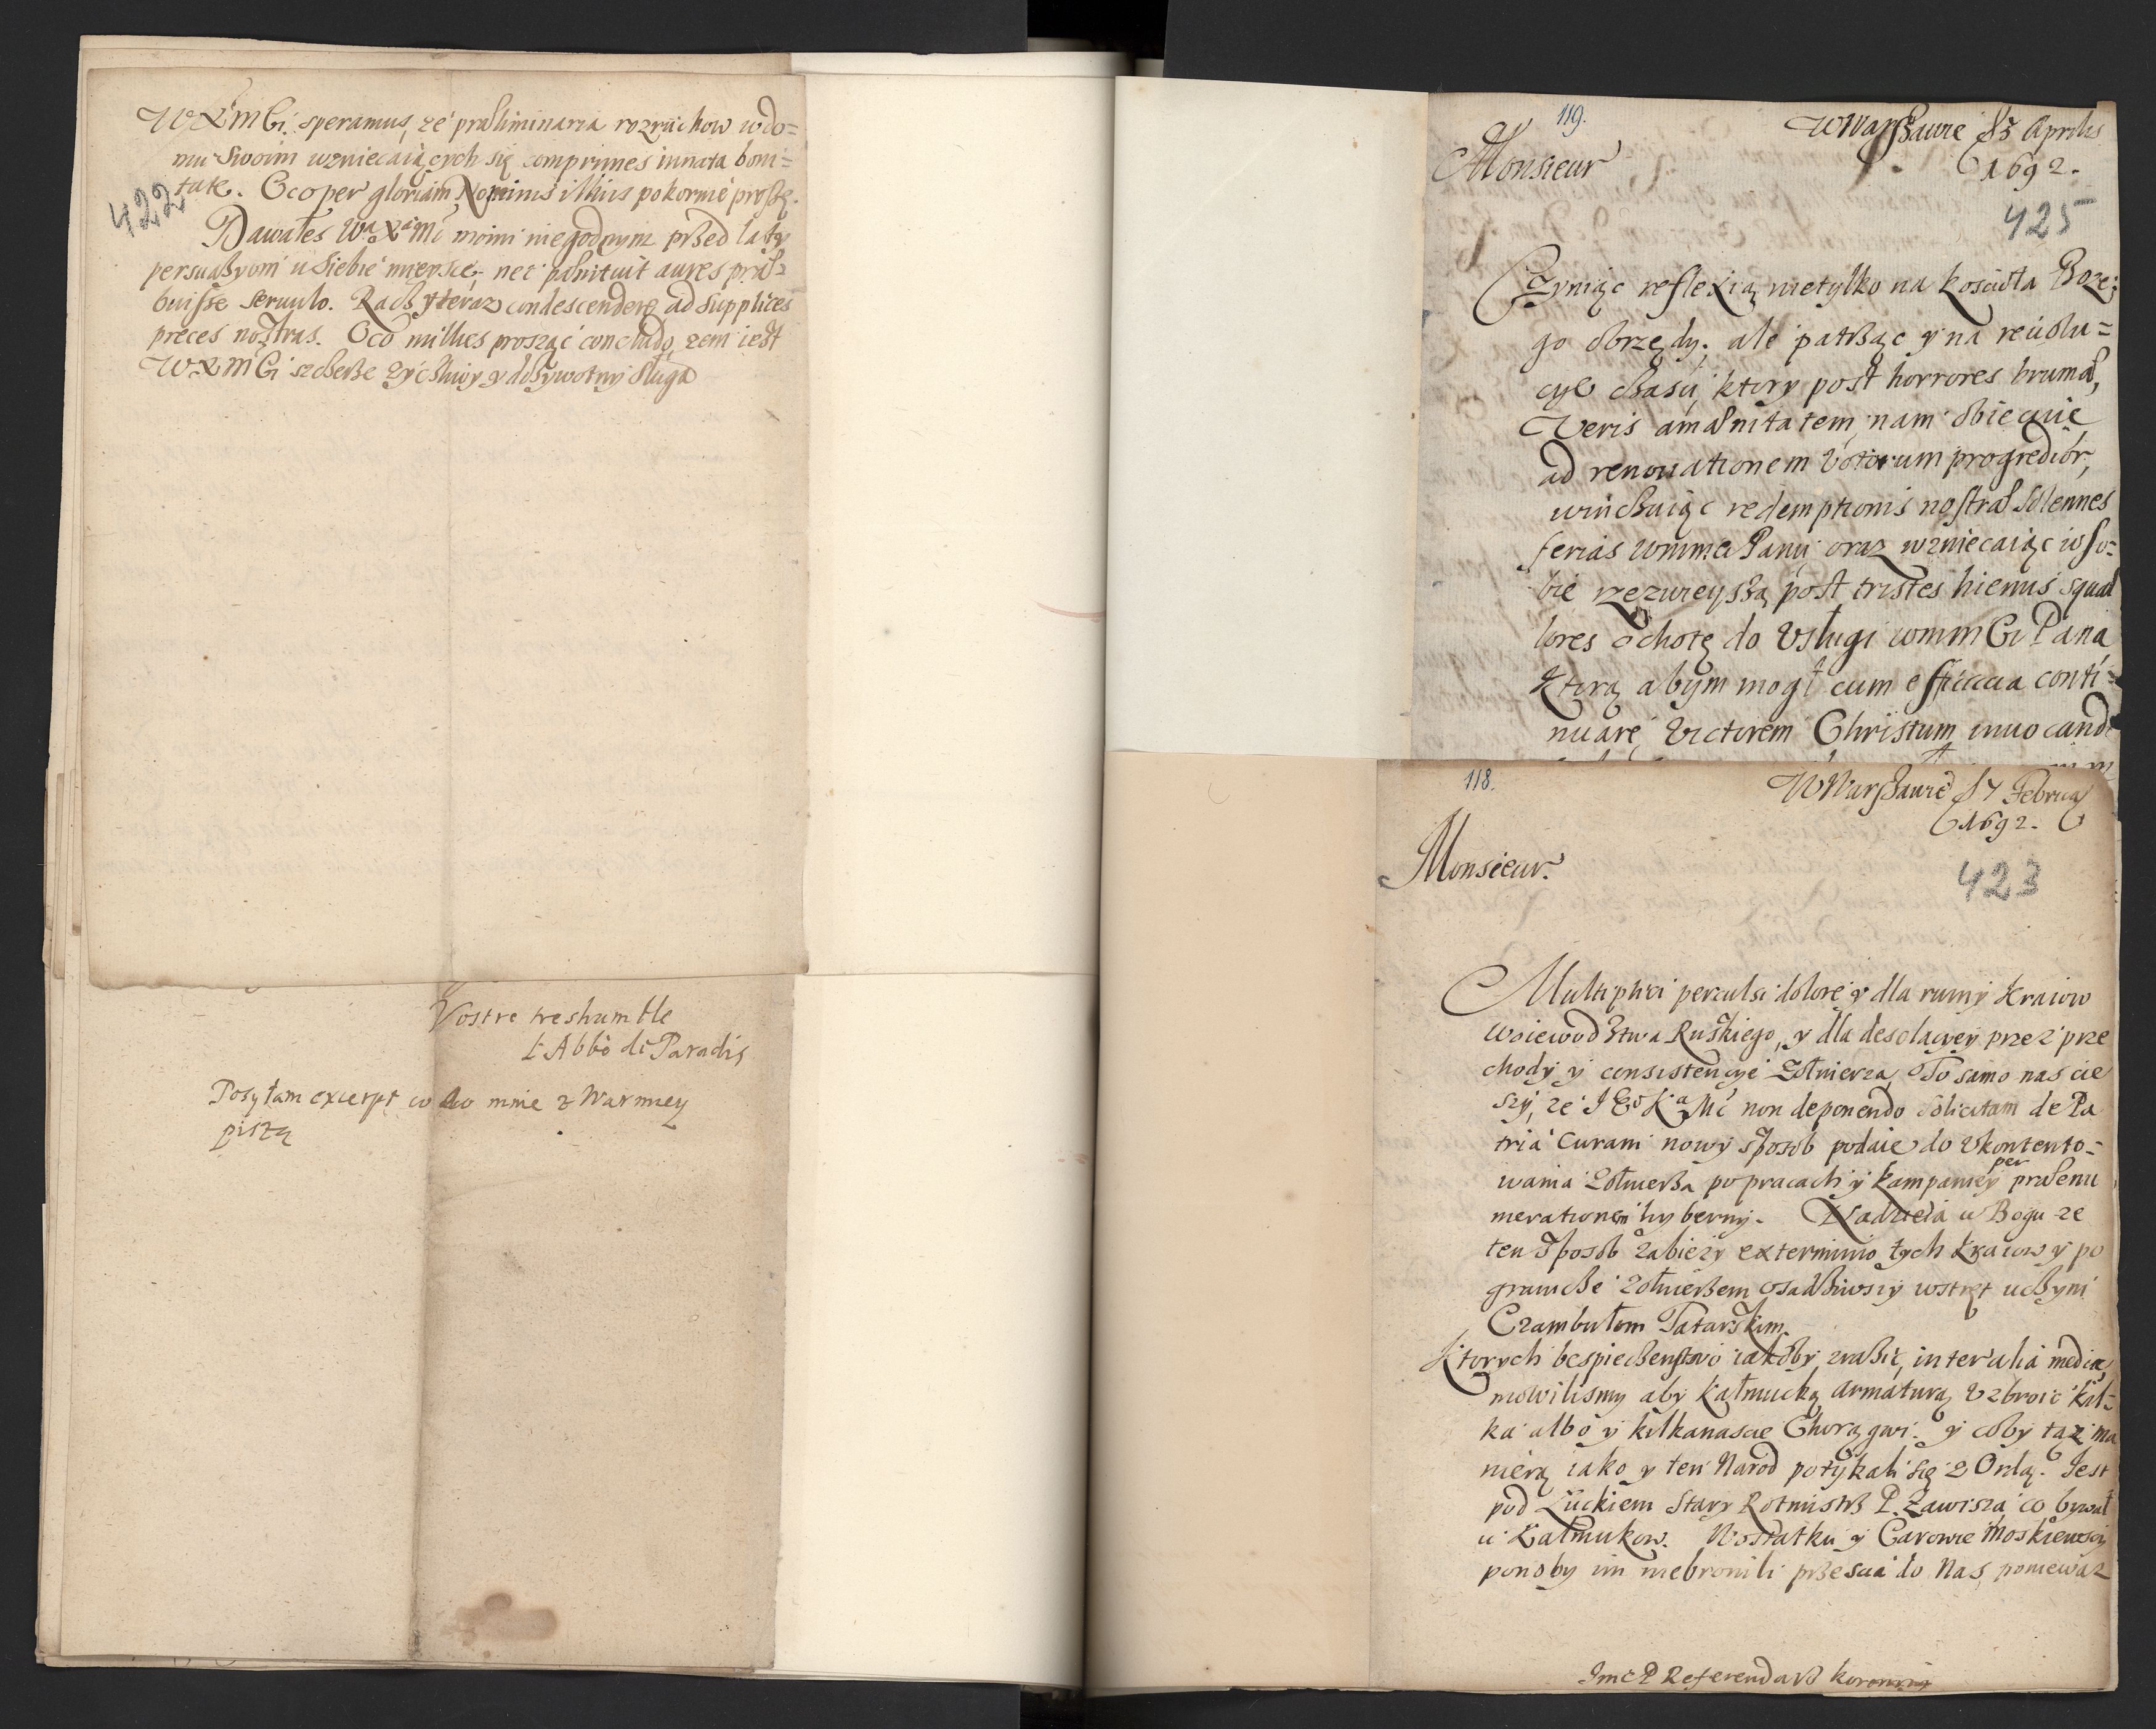 WXMCi. speramus, że præliminaria rozruchow w do=
mu Swoim wzniecaiących się comprimes innata boni=
tate. O co per gloriam Nominis illius pokornie proszę.
422
Dawałes Wa XMć moim niegodnym przed laty
persuasyom u siebie mieysce, nec pænituit aures præ=
buisse seruulo. Racz y teraz condescendere ad supplices
preces nostras. O co millies prosząc concludo, żem iest
WXMCi szczerze życzliwy y dożywotny sługa
Vostre treshumble
L'Abbé de Paradis
Posyłam excerpt co do mnie z Warmiey
piszą
119.
WWarszawie 83 Aprilis
1692.
Monsieur
425
Czyniąc reflexią nietylko na koscioła Boże=
go obrzędy, ale patrząc y na reuolu=
cye czasu, ktory post horrores brumæ,
Veris amænitatem nam obiecuie
ad renouationem Votorum progredior,
winczuiąc redemptionis nostræ solennes
ferias Panu oraz wzniecaiąc w so=
bie rezureyszą post tristes hiemis squal
lores ochotę do Usługi WMMCi Pana
Ktorą abym mogł cum efficacia conti=
nuare, Victorem Christum inuocand
118.
WWarszawie 17 Februa
1692.
Monsieur.
423
Multiplici perculsi dolore y dla ruiny Kraiow
Woiewodztwa Ruskiego, y dla desolacyey przez prze
chody y consistencye Zołnierza, To samo nas cie
szy, że J Eo Ka Mć non deponendo solicitam de Pa
tria Curam nowy sposob podaie do Vkontento=
wania Zołnierza po pracach y kampaniey per prænu
merationem hyberny. Nadzieia w Bogu że
ten sposob zabieży exterminio tych Kraiow y po
granicze Zołnierzem osadziwszy wstręt uczyni
Czambułom Tatarskim.
Ktorych bespieczenstwo iakoby zrazić, inter alia media,
mowilismy aby Kałmucką Armaturą Vzbroić kil=
ka albo y kilkanascie Chorągwi. y coby taż ma
nierą iako y ten Narod potykali się z Ordą. Jest
pod Łuckiem Stary Rotmistrz P. Zawisza, co bywał
u Kałmukow. Wostatku y Carowie Moskiewscy
ponoby im niebronili przescia do Nas, poniewaz
Imć P Referendarz koronny